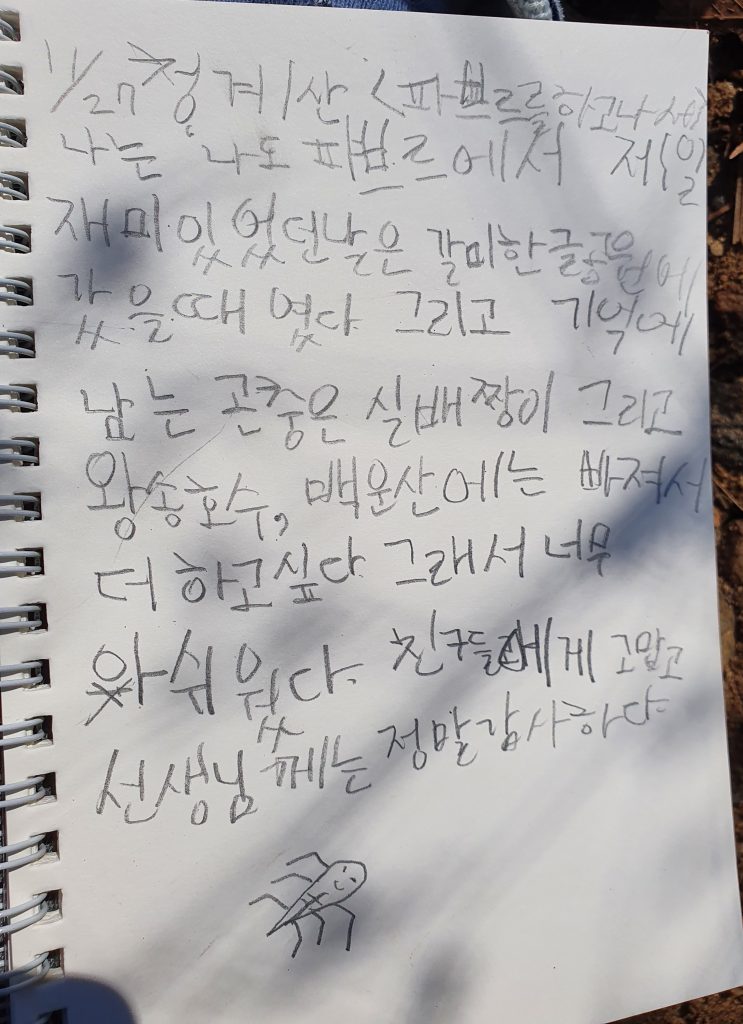 11/27 청계산 <파브르를 하고나서>
나는 나도 파브르에서 제일
재미있었던날은 갈미한글공원에
갔을때 였다 그리고 기억에
남는 곤충은 실배짱이 그리고
왕송호수, 백운산에는 빠져서
더 하고싶다 그래서 너무
아쉬웠다. 친구들에게 고맙고
선생님께는 정말감사하다